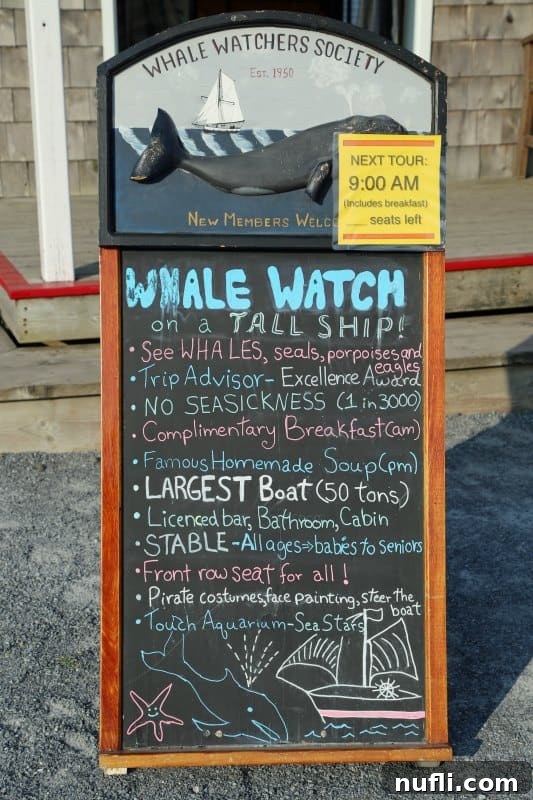 WHALE WATCHERS SOCIETY
Est. 1950
NEXT TOUR:
9:00 AM
(includes breakfast)
___ seats left
NEW MEMBERS
WHALE WATCH
on a TALL SHIP!
• See WHALES, seals, porpoises and eagles
• Trip Advisor - Excellence Award
• NO SEASICKNESS (1 in 3000)
• Complimentary Breakfast (am)
• Famous Homemade Soup (pm)
• LARGEST Boat (50 tons)
• Licenced bar, Bathroom, Cabin
• STABLE - All ages ⇒ babies to seniors
• Front row seat for all!
• Pirate costumes, face painting, steer the boat
• Touch Aquarium - Sea Stars
nufli.com